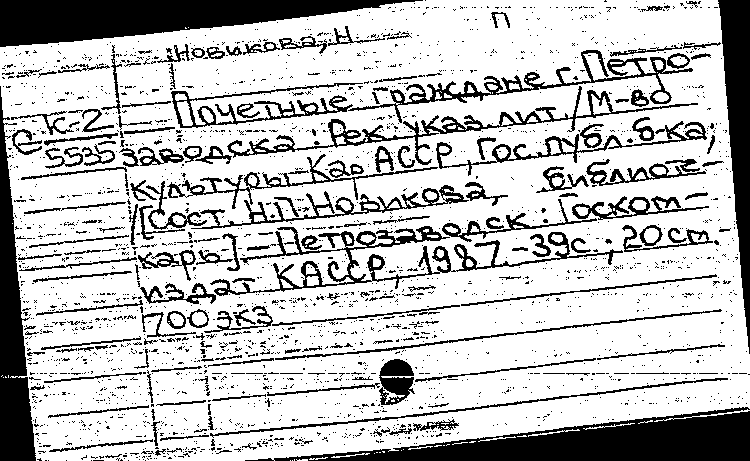 П
Новикова, Н
Почетные граждане г. Петро-
С К-2
5535
заводска : Рек. указ. лит. / М-во
культуры Кар АССР, Гос. публ. б-ка;
/[Сост. Н.П. Новикова, библиоте-
карь]. – Петрозаводск : Госком-
издат КАССР, 1987. – 39с. ; 20см. -
700 экз